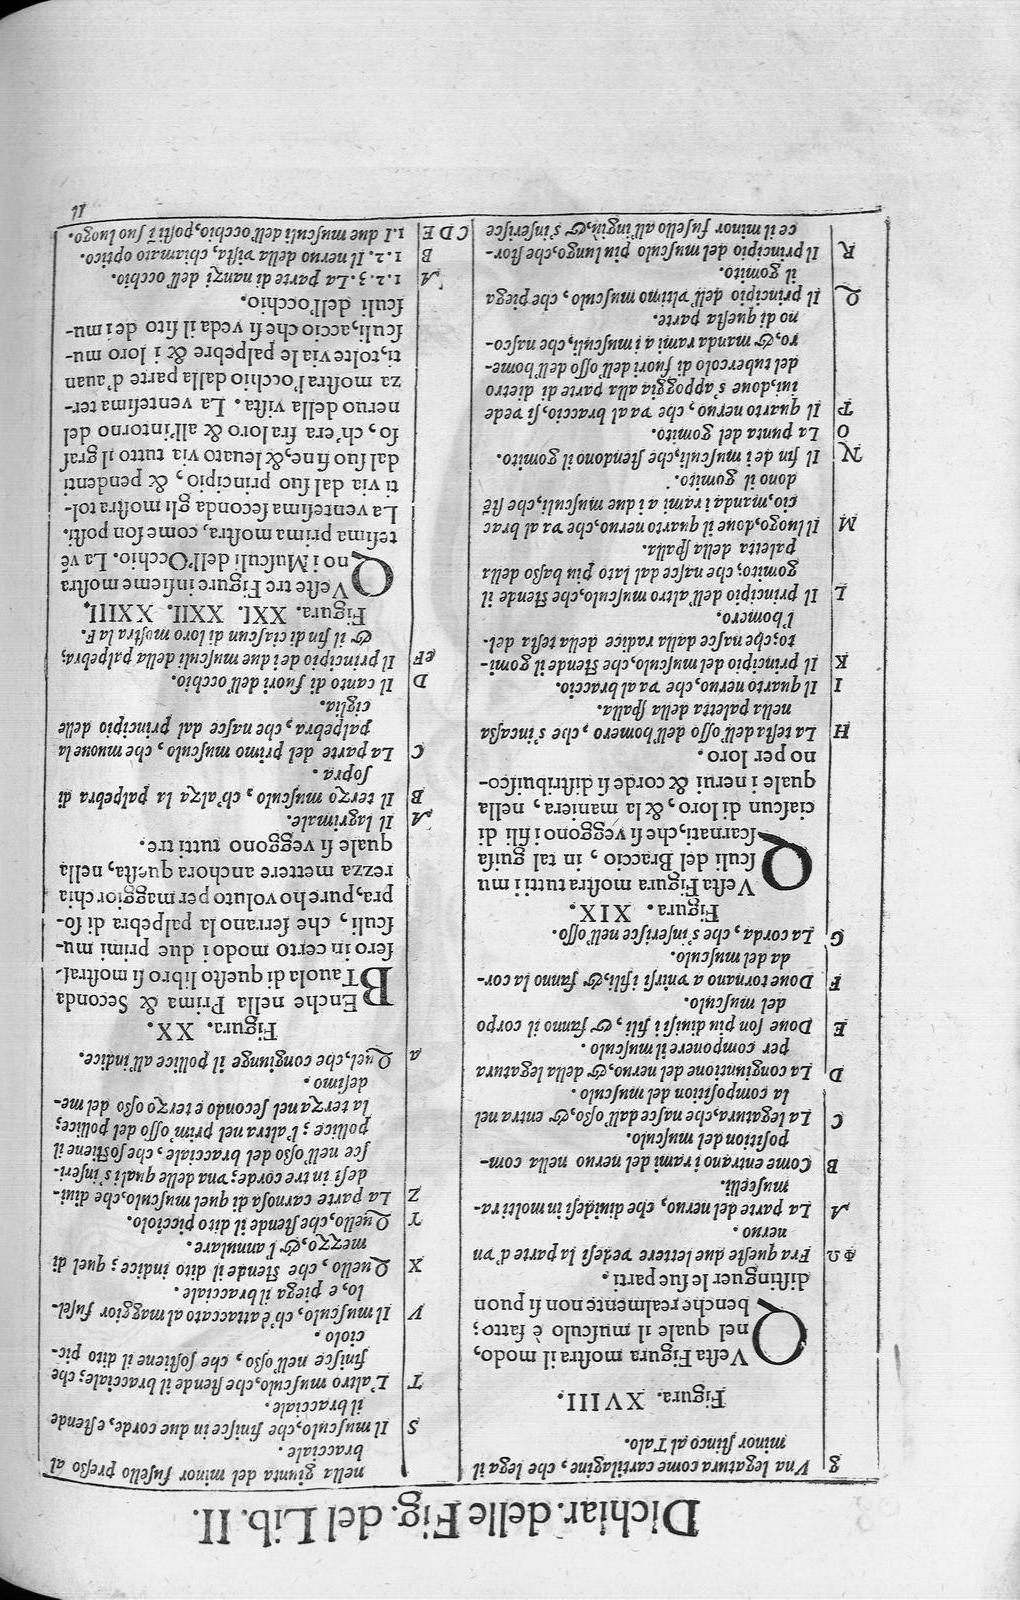 Dichiar. delle Fig. del Lib. II.
g Vna legatura come cartilagine, che lega il
minor ſtinco al Talo.
Figura. XVIII.
QVeſta Figura moſtra il modo,
nel quale il muſculo è fatto;
benche realmente non ſi puon
diſtinguer le ſue parti.
ΦΩ Fra queſte due lettere vedeſi la parte d'vn
neruo.
A La parte del neruo, che diuideſi in molti ra-
muſcelli.
B Come entrano i rami del neruo nella com-
poſition del muſculo.
C La legatura, che naſce dall'oſſo, & entra nel
la compoſition del muſculo.
D La congiuntione del neruo, & della legatura
per componere il muſculo.
E Doue ſon piu diuiſi i fili, & fanno il corpo
del muſculo.
F Doue tornano a vnirſi i fili, & fanno la cor-
da del muſculo.
G La corda, che s'inſeriſce nell'oſſo.
Figura. XIX.
QVeſta Figura moſtra tutti i mu
ſculi del Braccio, in tal guiſa
ſcarnati, che ſi veggono i fili di
ciaſcun di loro, & la maniera, nella
quale i nerui & corde ſi diſtribuiſco-
no per loro.
H La teſta dell'oſſo dell'homero, che s'incaſſa
nella paletta della ſpalla.
I Il quarto neruo, che va al braccio.
K Il principio del muſculo, che ſtende il gomi-
to; che naſce dalla radice della teſta del-
l'homero.
L Il principio dell'altro muſculo, che ſtende il
gomito; che naſce dal lato piu baſſo della
paletta della ſpalla.
M Il luogo, doue il quarto neruo, che va al brac
cio, manda i rami a i due muſculi, che ſtē
dono il gomito.
N Il fin de i muſculi, che ſtendono il gomito.
O La punta del gomito.
P Il quarto neruo, che va al braccio, ſi vede
iui, doue s'appoggia alla parte di dietro
del tubercolo di fuori dell'oſſo dell'home-
ro, & manda rami a i muſculi, che naſco-
no di queſta parte.
Q Il principio dell'vltimo muſculo, che piega
il gomito.
R Il principio del muſculo piu lungo, che ſtor-
ce il minor fuſello all'ingiù, & s'inſeriſce
nella giunta del minor fuſello preſſo al
bracciale.
S Il muſculo, che finiſce in due corde, e ſtende
il bracciale.
T L'altro muſculo, che ſtende il bracciale; che
finiſce nell'oſſo, che ſoſtiene il dito pic-
ciolo.
V Il muſculo, ch'è attaccato al maggior fuſel-
lo, e piega il bracciale.
X Quello, che ſtende il dito indice; quel di
mezzo, & l'annulare.
Y Quello, che ſtende il dito picciolo.
Z La parte carnoſa di quel muſculo, che diui-
deſi in tre corde; vna delle quali s'inſeri-
ſce nell'oſſo del bracciale, che ſoſtiene il
pollice; l'altra nel prim'oſſo del pollice;
la terza nel ſecondo e terzo oſſo del me-
deſimo.
a Quel, che congiunge il pollice all'indice.
Figura. XX.
BEnche nella Prima & Seconda
Tauola di queſto libro ſi moſtraſ-
ſero in certo modo i due primi mu-
ſculi, che ſerrano la palpebra di ſo-
pra, pure ho voluto per maggior chia
rezza mettere anchora queſta, nella
quale ſi veggono tutti tre.
A Il lagrimale.
B Il terzo muſculo, ch'alza la palpebra di
ſopra.
C La parte del primo muſculo, che muoue la
palpebra, che naſce dal principio delle
ciglia.
D Il canto di fuori dell'occhio.
eF Il principio de i due muſculi della palpebra,
& il fin di ciaſcun di loro moſtra la F.
Figura. XXI. XXII. XXIII.
QVeſte tre Figure inſieme moſtra
no i Muſculi dell'Occhio. La vē
teſima prima moſtra, come ſon poſti.
La venteſima ſeconda gli moſtra tol-
ti via dal ſuo principio, & pendenti
dal ſuo fine, & leuato via tutto il graſ
ſo, ch'era fra loro & all'intorno del
neruo della viſta. La venteſima ter-
za moſtra l'occhio dalla parte d'auan
ti, tolte via le palpebre & i loro mu-
ſculi, accio che ſi veda il ſito de i mu-
ſculi dell'occhio.
A 1.2.3. La parte di nanzi dell'occhio.
B 1.2. Il neruo della viſta, chiamato optico.
CDE 1. I due muſculi dell'occhio, poſti ī ſuo luogo.